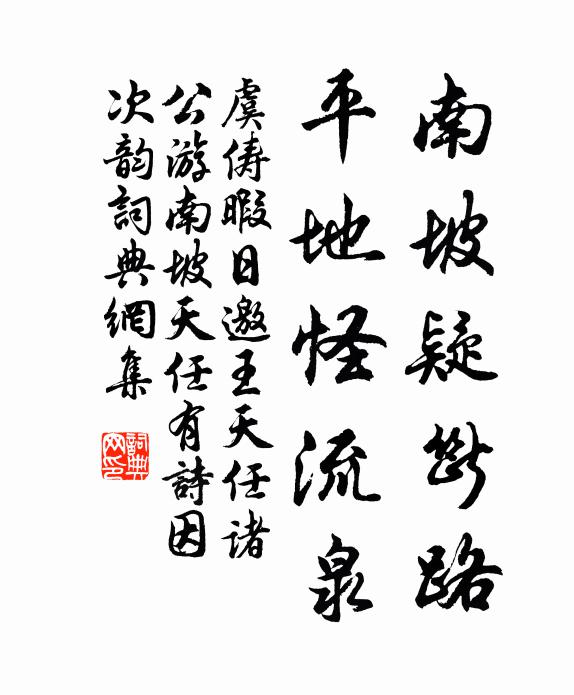 南坡疑斷路
平地怪流泉
虞儔暇日邀王天任諸
公游南坡天任有詩因
次韵詞典網集
詞典網印